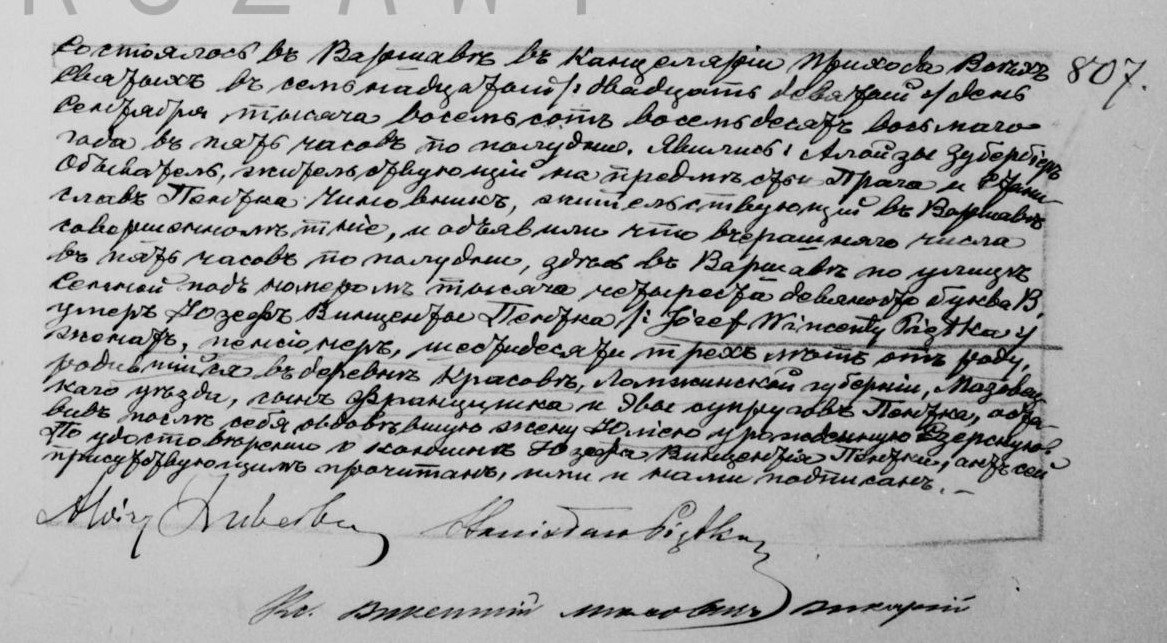 ROZAWY
Состоялось въ Варшавѣ въ Канцеляріи прихода Всѣхъ 807.
Святыхъ въ семьнадцатый /: двадцать девятый :/ день
Сентября тысяча восемьсотъ восемьдесятъ восьмаго
года въ пять часовъ по полудни. Явились: Алойзы Зуберберъ
Обыватель, жительствующій на предмѣстьи Прага и Стани-
славъ Пентка Чиновникъ, жительствующій въ Варшавѣ
совершеннолѣтніе, и объявили что вчерашняго числа
въ пять часовъ по полудни, здѣсь въ Варшавѣ по улицѣ
Сенной подъ номеромъ тысяча четыреста девяносто буква В,
умеръ Юзефъ Винцентые Пентка /: Józef Wincenty Piętka :/
женатъ, пенсіонеръ, шестидесяти трехъ лѣтъ отъ роду,
родившійся въ деревнѣ Красовѣ, Ломжинской губерніи, Мазовец-
каго уѣзда, сынъ Францишка и Эвы супруговъ Пентка, оста-
вивъ послѣ себя овдовѣвшую жену Юлію урожденную Езерскую.
По удостовѣреніи о кончинѣ Юзефа Винцентія Пентки, актъ сей
присутствующимъ прочитанъ, ими и нами подписанъ. —
Stanisław Piętka
Кс. Викентій викарій